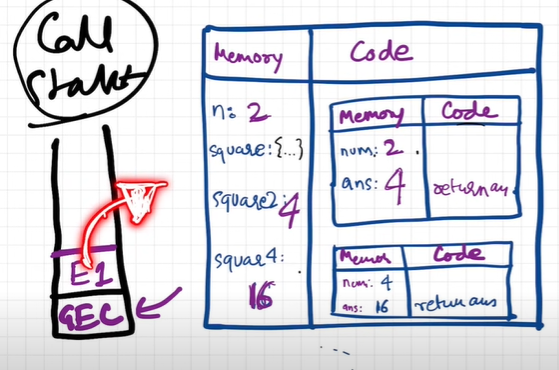 Call
Stack
E1
GEC
Memory
Code
n: 2
square: {...}
square2: 4
squar4:
16
Memory
Code
num: 2
ans: 4
return an
Memor
Code
num: 4
ans: 16
return ans